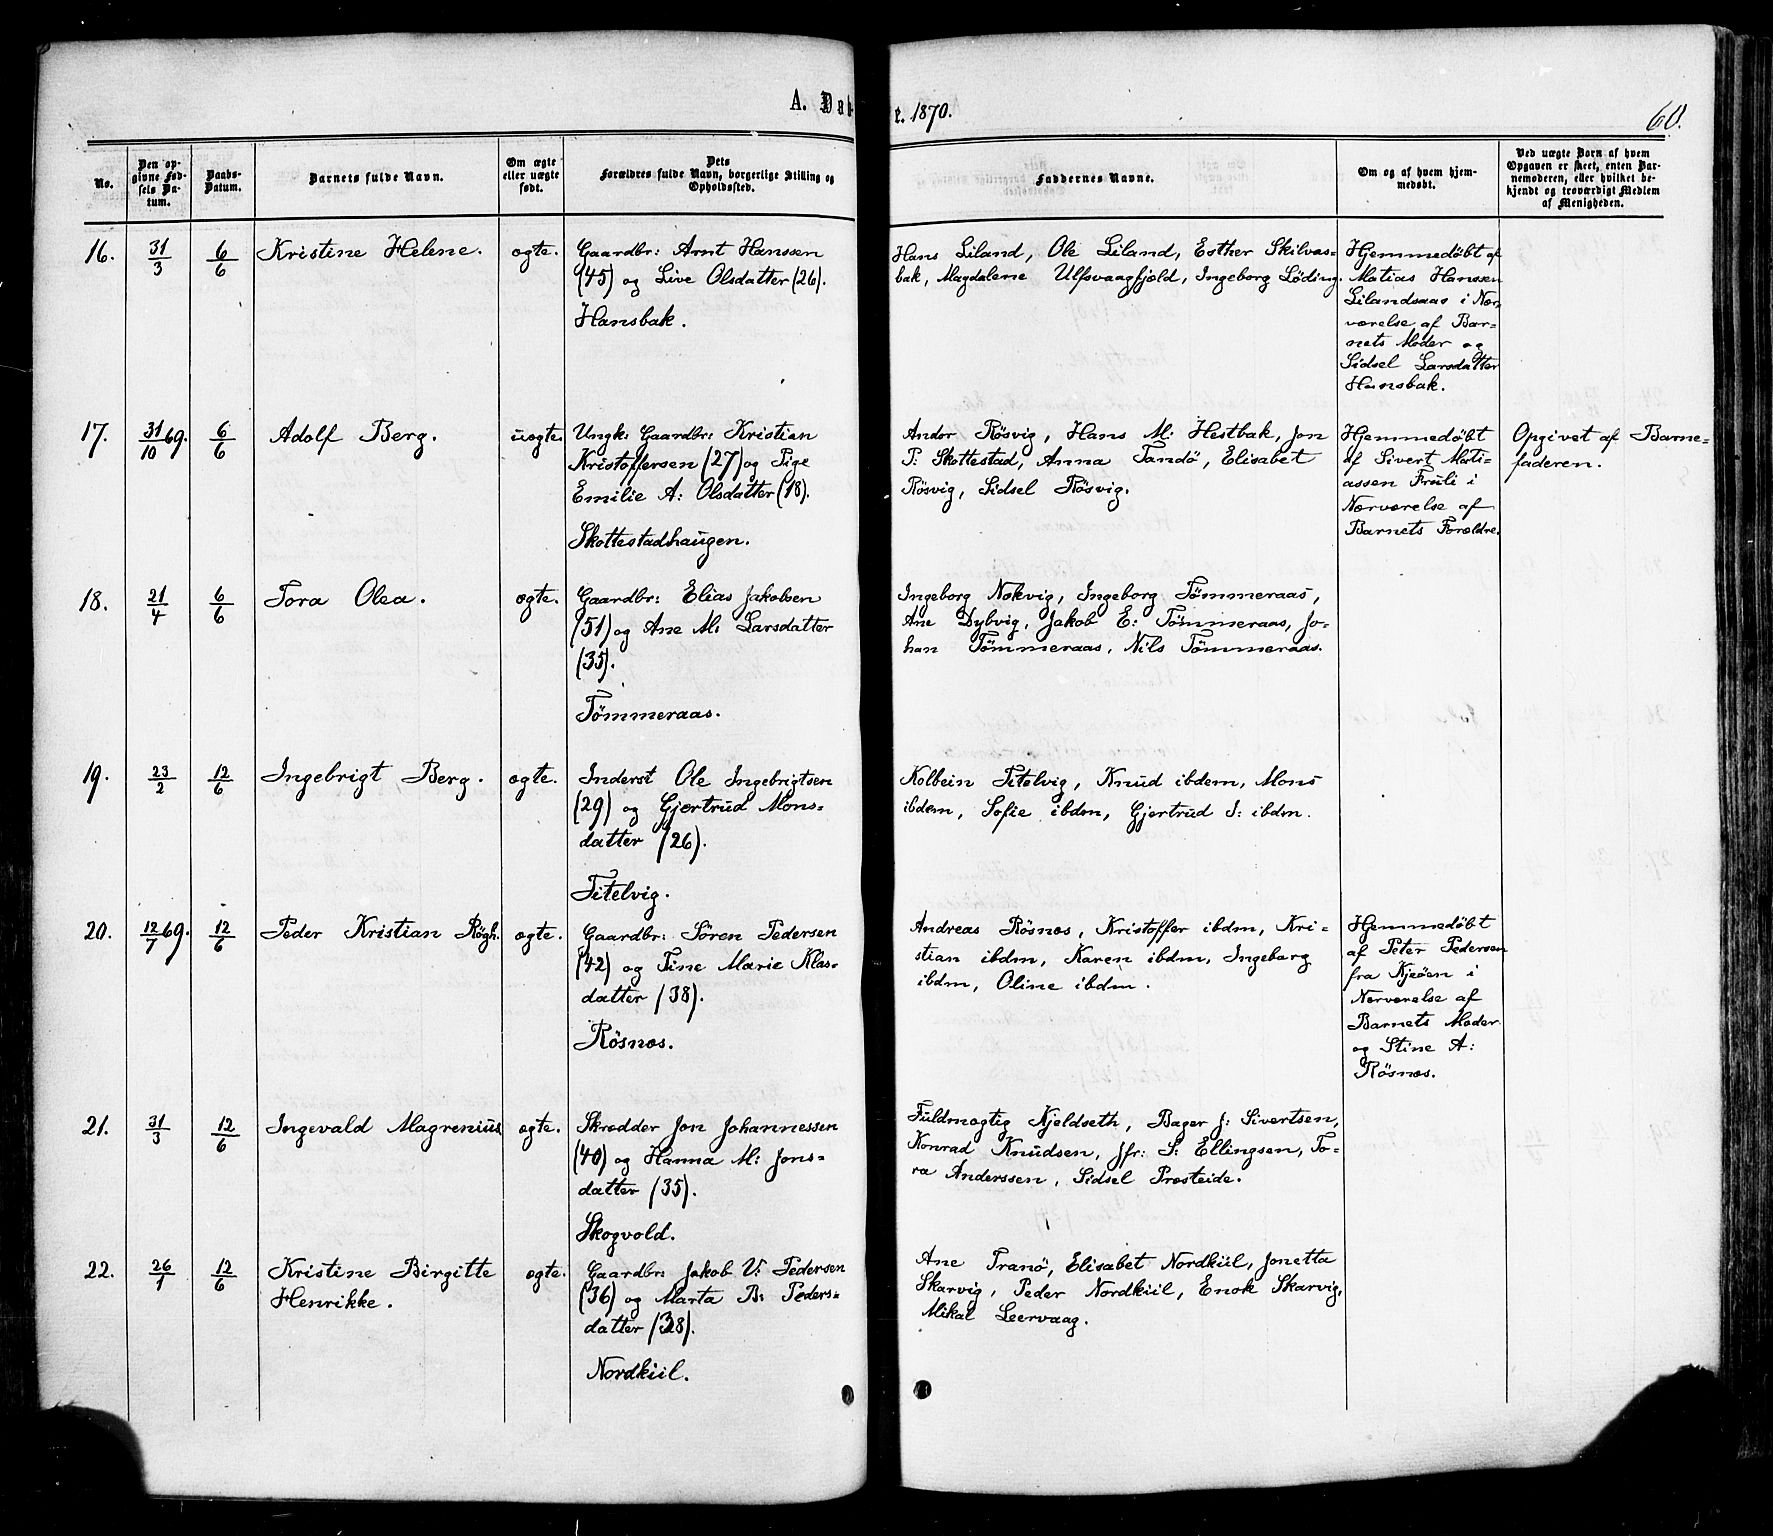 A. Dåb
t. 1870.
60.
No.
Den op-
givne Fød-
sels Da-
tum.
Daabs-
Datum.
Barnets fulde Navn.
Om ægte
eller uægte
født.
Dets
Forældres fulde Navn, borgerlige Stilling og
Opholdssted.
Faddernes Navne.
Om og af hvem hjem-
medøbt.
Ved uægte Børn af hvem
Opgaven er skeet, enten Bar-
nemoderen, eller hvilket be-
kjendt og troværdigt Medlem
af Menigheden.
16.
31/3
6/6
Kristine Helene.
ægte.
Gaardbr: Arnt Hanssen
(45) og Live Olsdatter (26).
Hansbak.
Hans Liland, Ole Liland, Esther Skilvas=
bak, Magdalene Ulfsvaagfjæld, Ingeborg Løding.
Hjemmedøbt af
Matias Hanssen
Lilandsaas i Nær=
værelse af Bar=
nets Moder og
Sidsel Larsdatter
Hansbak.
17.
31/10 69.
6/6
Adolf Berg.
uægte.
Ungk: Gaardbr: Kristian
Kristoffersen (27) og Pige
Emilie A: Olsdatter (18).
Skottestadhaugen.
Andor Røsvig, Hans M: Hestbak, Jon
P: Skottestad, Anna Tandø, Elisabet
Røsvig, Sidsel Røsvig.
Hjemmedøbt
af Sivert Mati=
assen Fruli i
Nærværelse af
Barnets Forældre.
Opgivet af Barne=
faderen.
18.
21/4
6/6
Tora Olea.
ægte.
Gaardbr: Elias Jakobsen
(51) og Ane M: Larsdatter
(35).
Tømmeraas.
Ingeborg Nokvig, Ingeborg Tømmeraas,
Ane Dybvig, Jakob E: Tømmeraas, Jo=
han Tømmeraas, Nils Tømmeraas.
19.
23/2
12/6
Ingebrigt Berg.
ægte.
Inderst Ole Ingebrigtsen
(29) og Gjertrud Mons=
datter (26).
Titelvig.
Kolbein Titelvig, Knud ibdem, Mons
ibdem, Sofie ibdm, Gjertrud S: ibdm.
20.
12/7 69.
12/6
Peder Kristian Røgh.
ægte.
Gaardbr: Søren Pedersen
(42) og Tine Marie Klas=
datter (38).
Røsnæs.
Andreas Røsnæs, Kristoffer ibdm, Kri=
stian ibdm, Karen ibdm, Ingeborg
ibdm, Oline ibdm.
Hjemmedøbt
af Peter Pedersen
fra Kjeøen i
Nærværelse af
Barnets Moder
og Stine A:
Røsnæs.
21.
31/3
12/6
Ingevald Magrenius
ægte.
Skrædder Jon Johannessen
(40) og Hanna M: Jons=
datter (35).
Skogvold.
Fuldmægtig Kjeldseth, Bager J: Sivertsen,
Konrad Knudsen, Jfr: S: Ellingsen, To=
ra Anderssen, Sidsel Presteide.
22.
26/1
12/6
Kristine Birgitte
Henrikke.
ægte.
Gaardbr: Jakob V: Pedersen
(36) og Marta B: Peders=
datter (38).
Nordkiil.
Ane Tranø, Elisabet Nordkiil, Jonetta
Skarvig, Peder Nordkiil, Enok Skarvig,
Mikal Leervaag.